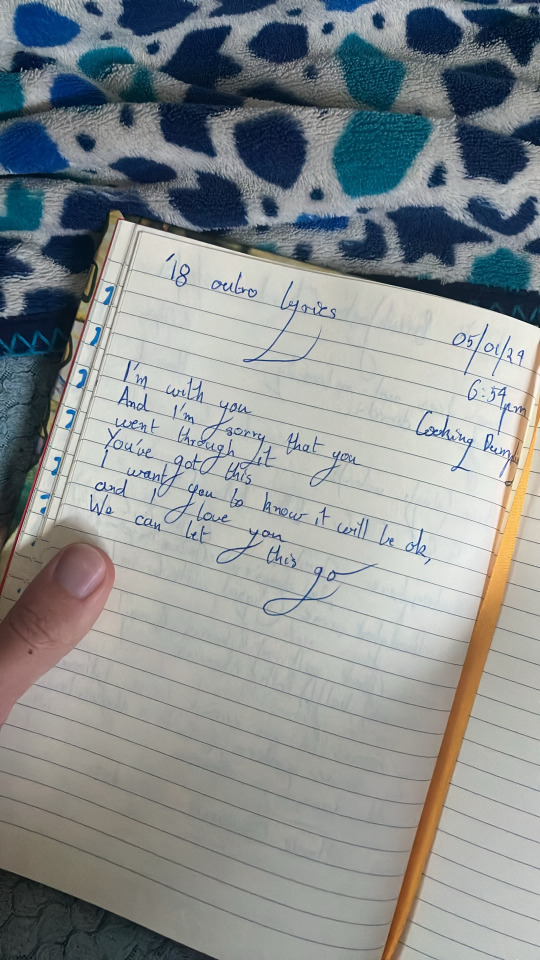 '18 outro lyrics
05/01/24
6:54pm
Cooking
I'm with you
And I'm sorry that you
went through it
You've got this
I want you to know it will be ok,
and I love you
We can let this go